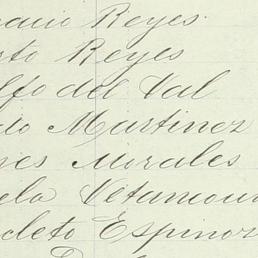 Reyes
Reyes
lfo del Val
do Martinez
Morales
ela Vetancour
cleto Espinoz